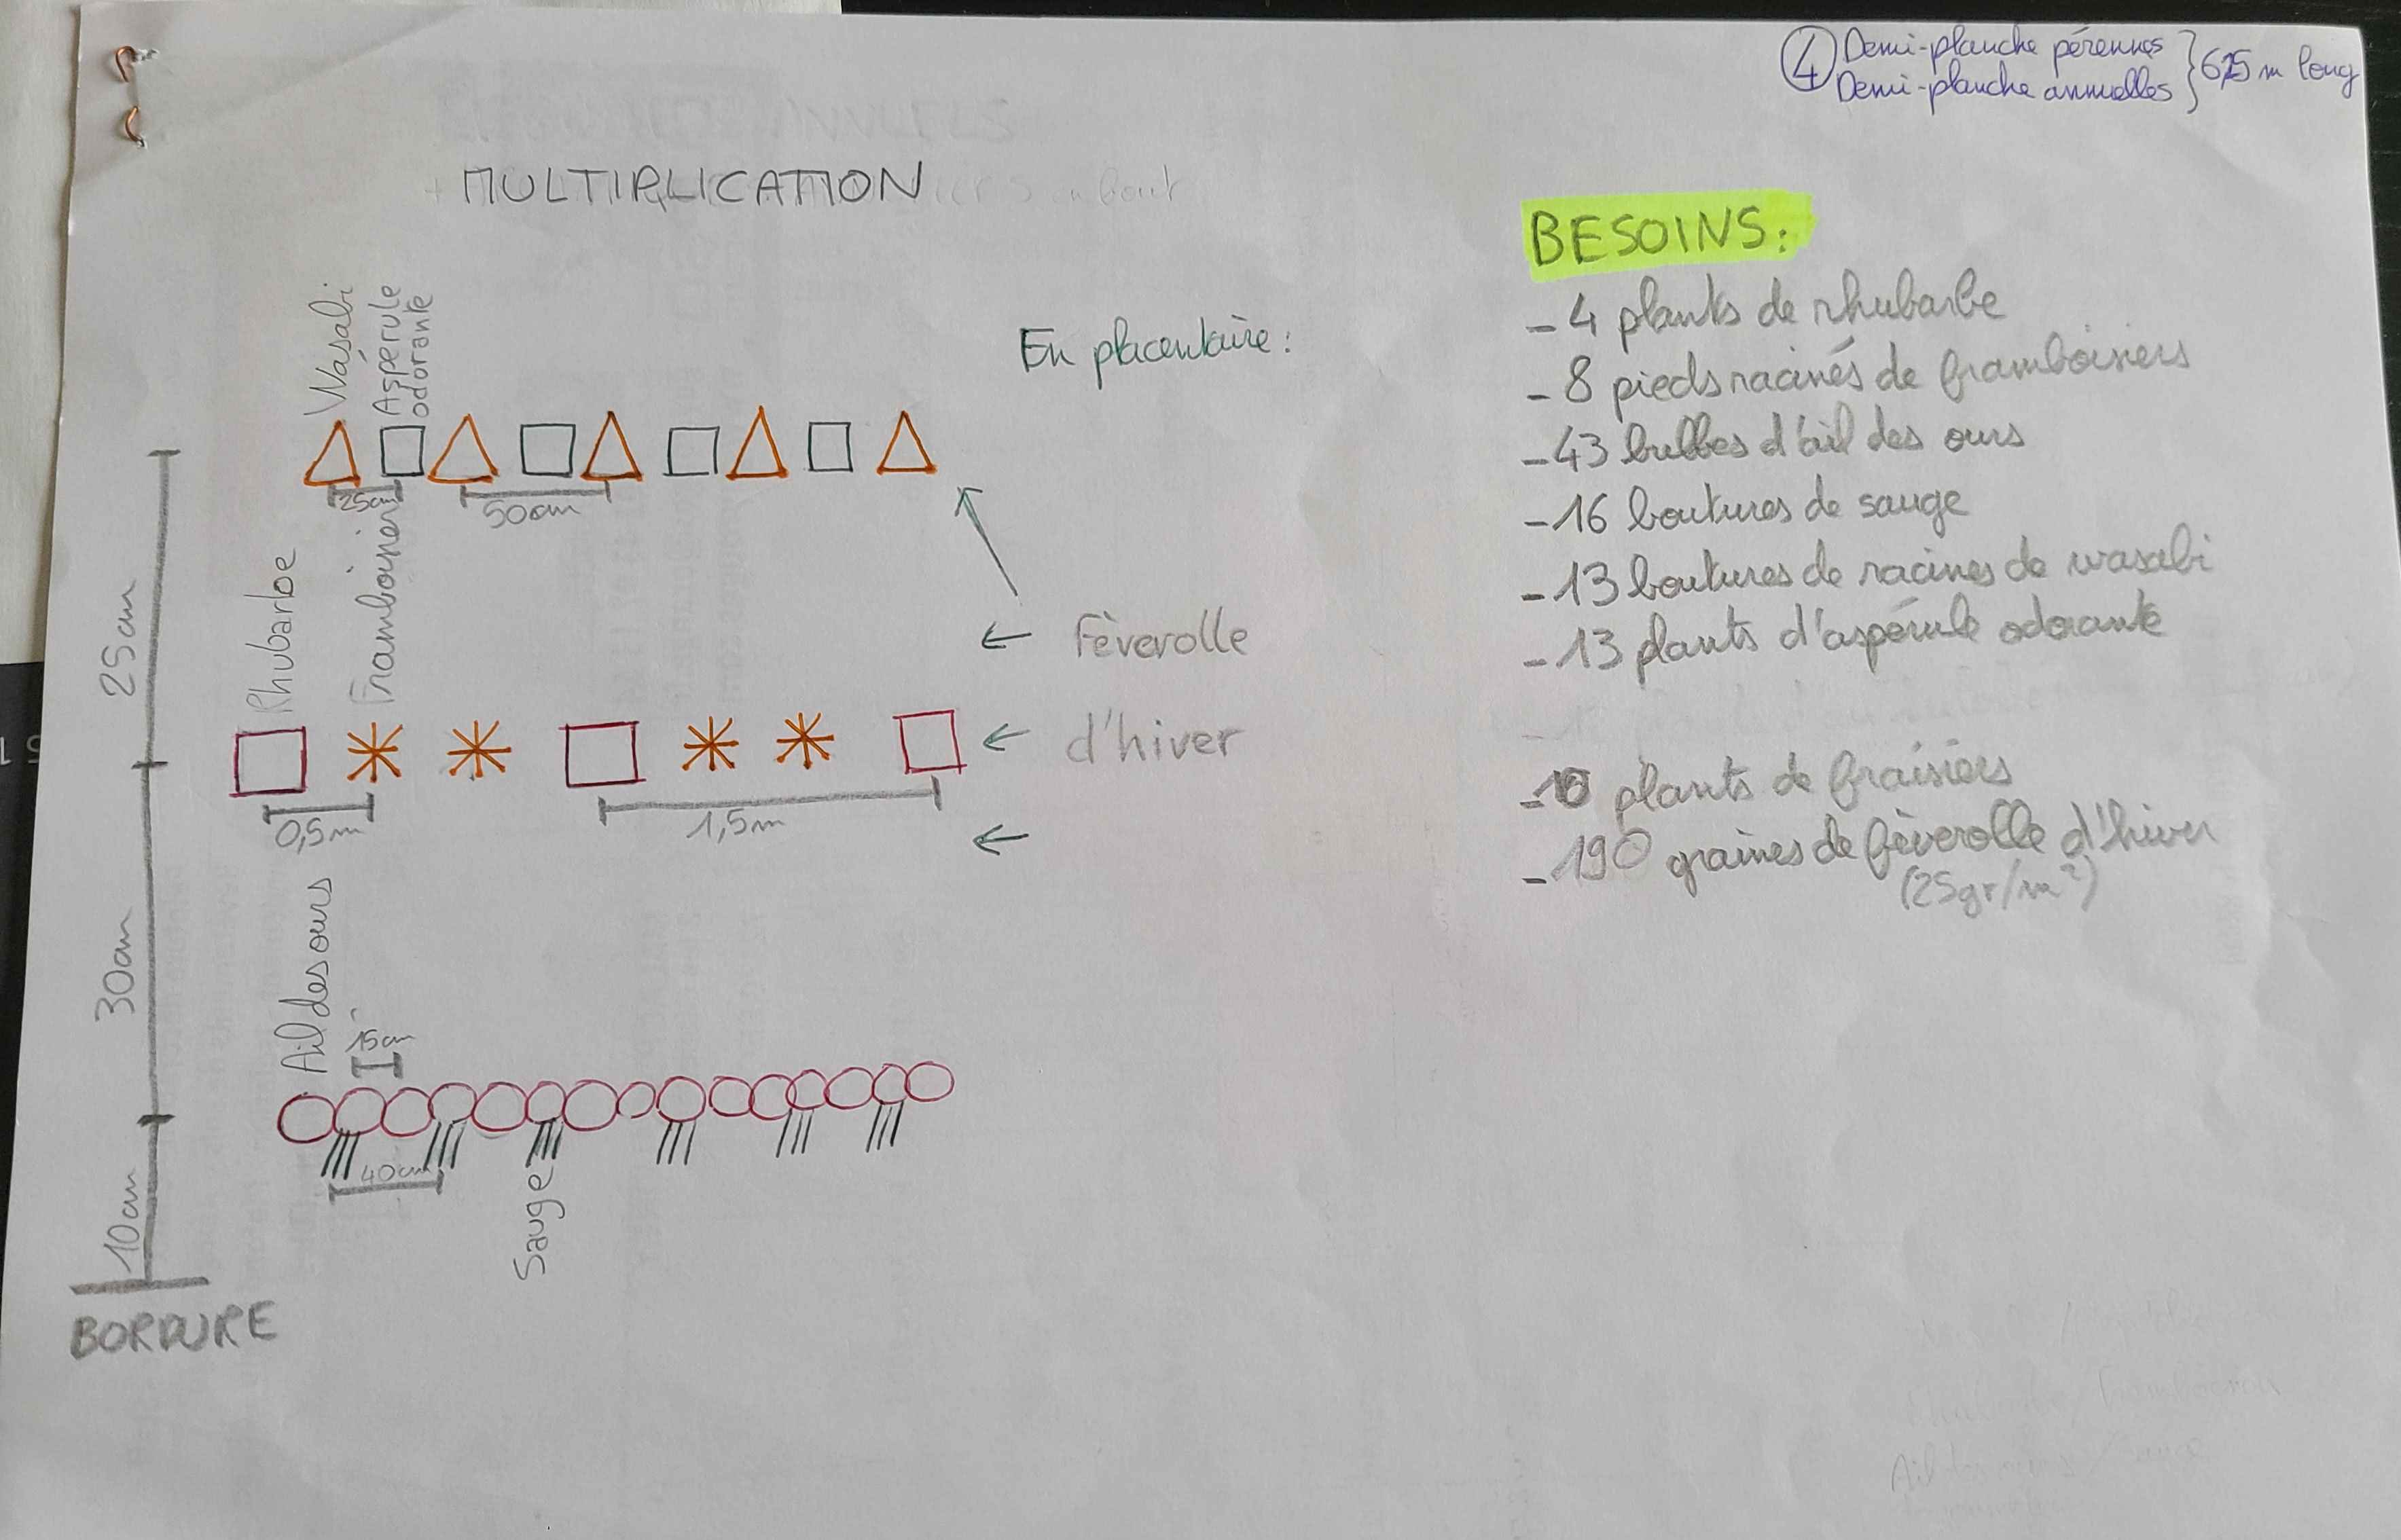 ④ Demi-planche pérennes } 6,25 m long
Demi-planche annuelles
MULTIPLICATION
BESOINS:
- 4 plants de rhubarbe
- 8 pieds racinés de framboisiers
- 43 bulbes d'ail des ours
- 16 boutures de sauge
- 13 boutures de racines de wasabi
- 13 plants d'aspérule odorante
- 10 plants de fraisiers
- 190 graines de fèverolle d'hiver
(25gr/m²)
En placentaire:
Wasabi
Aspérule
odorante
25cm
50cm
Fèverolle
d'hiver
25cm
Rhubarbe
Framboisier
0,5m
1,5m
30cm
Ail des ours
15cm
40cm
Sauge
10cm
BORDURE